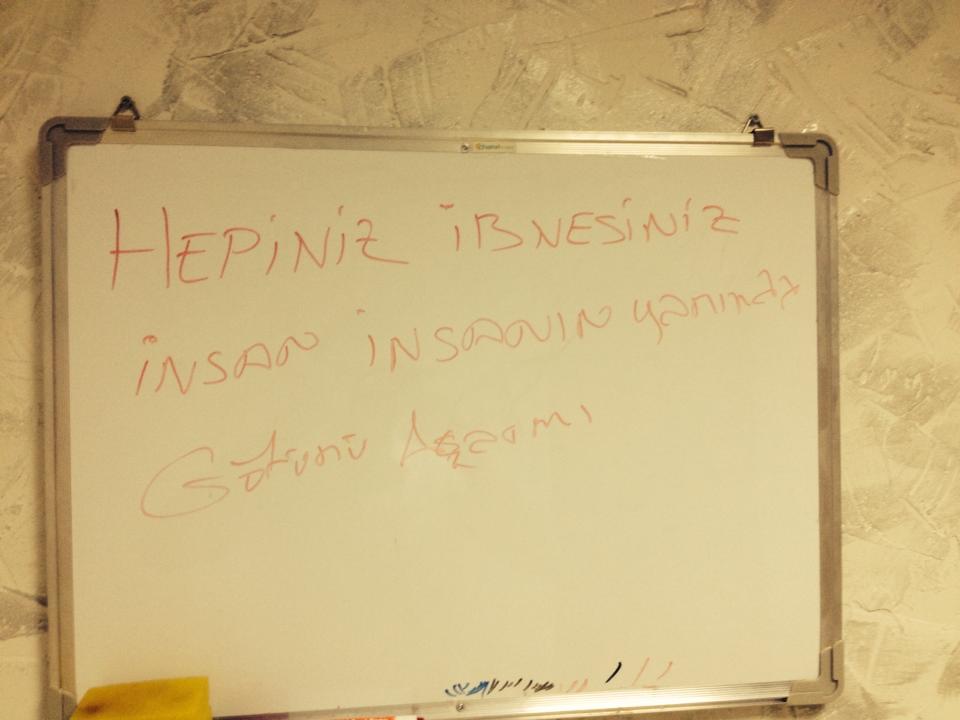 HEPİNİZ İBNESİNİZ
İNSAN İNSANIN yanında
Götünü Açarmı